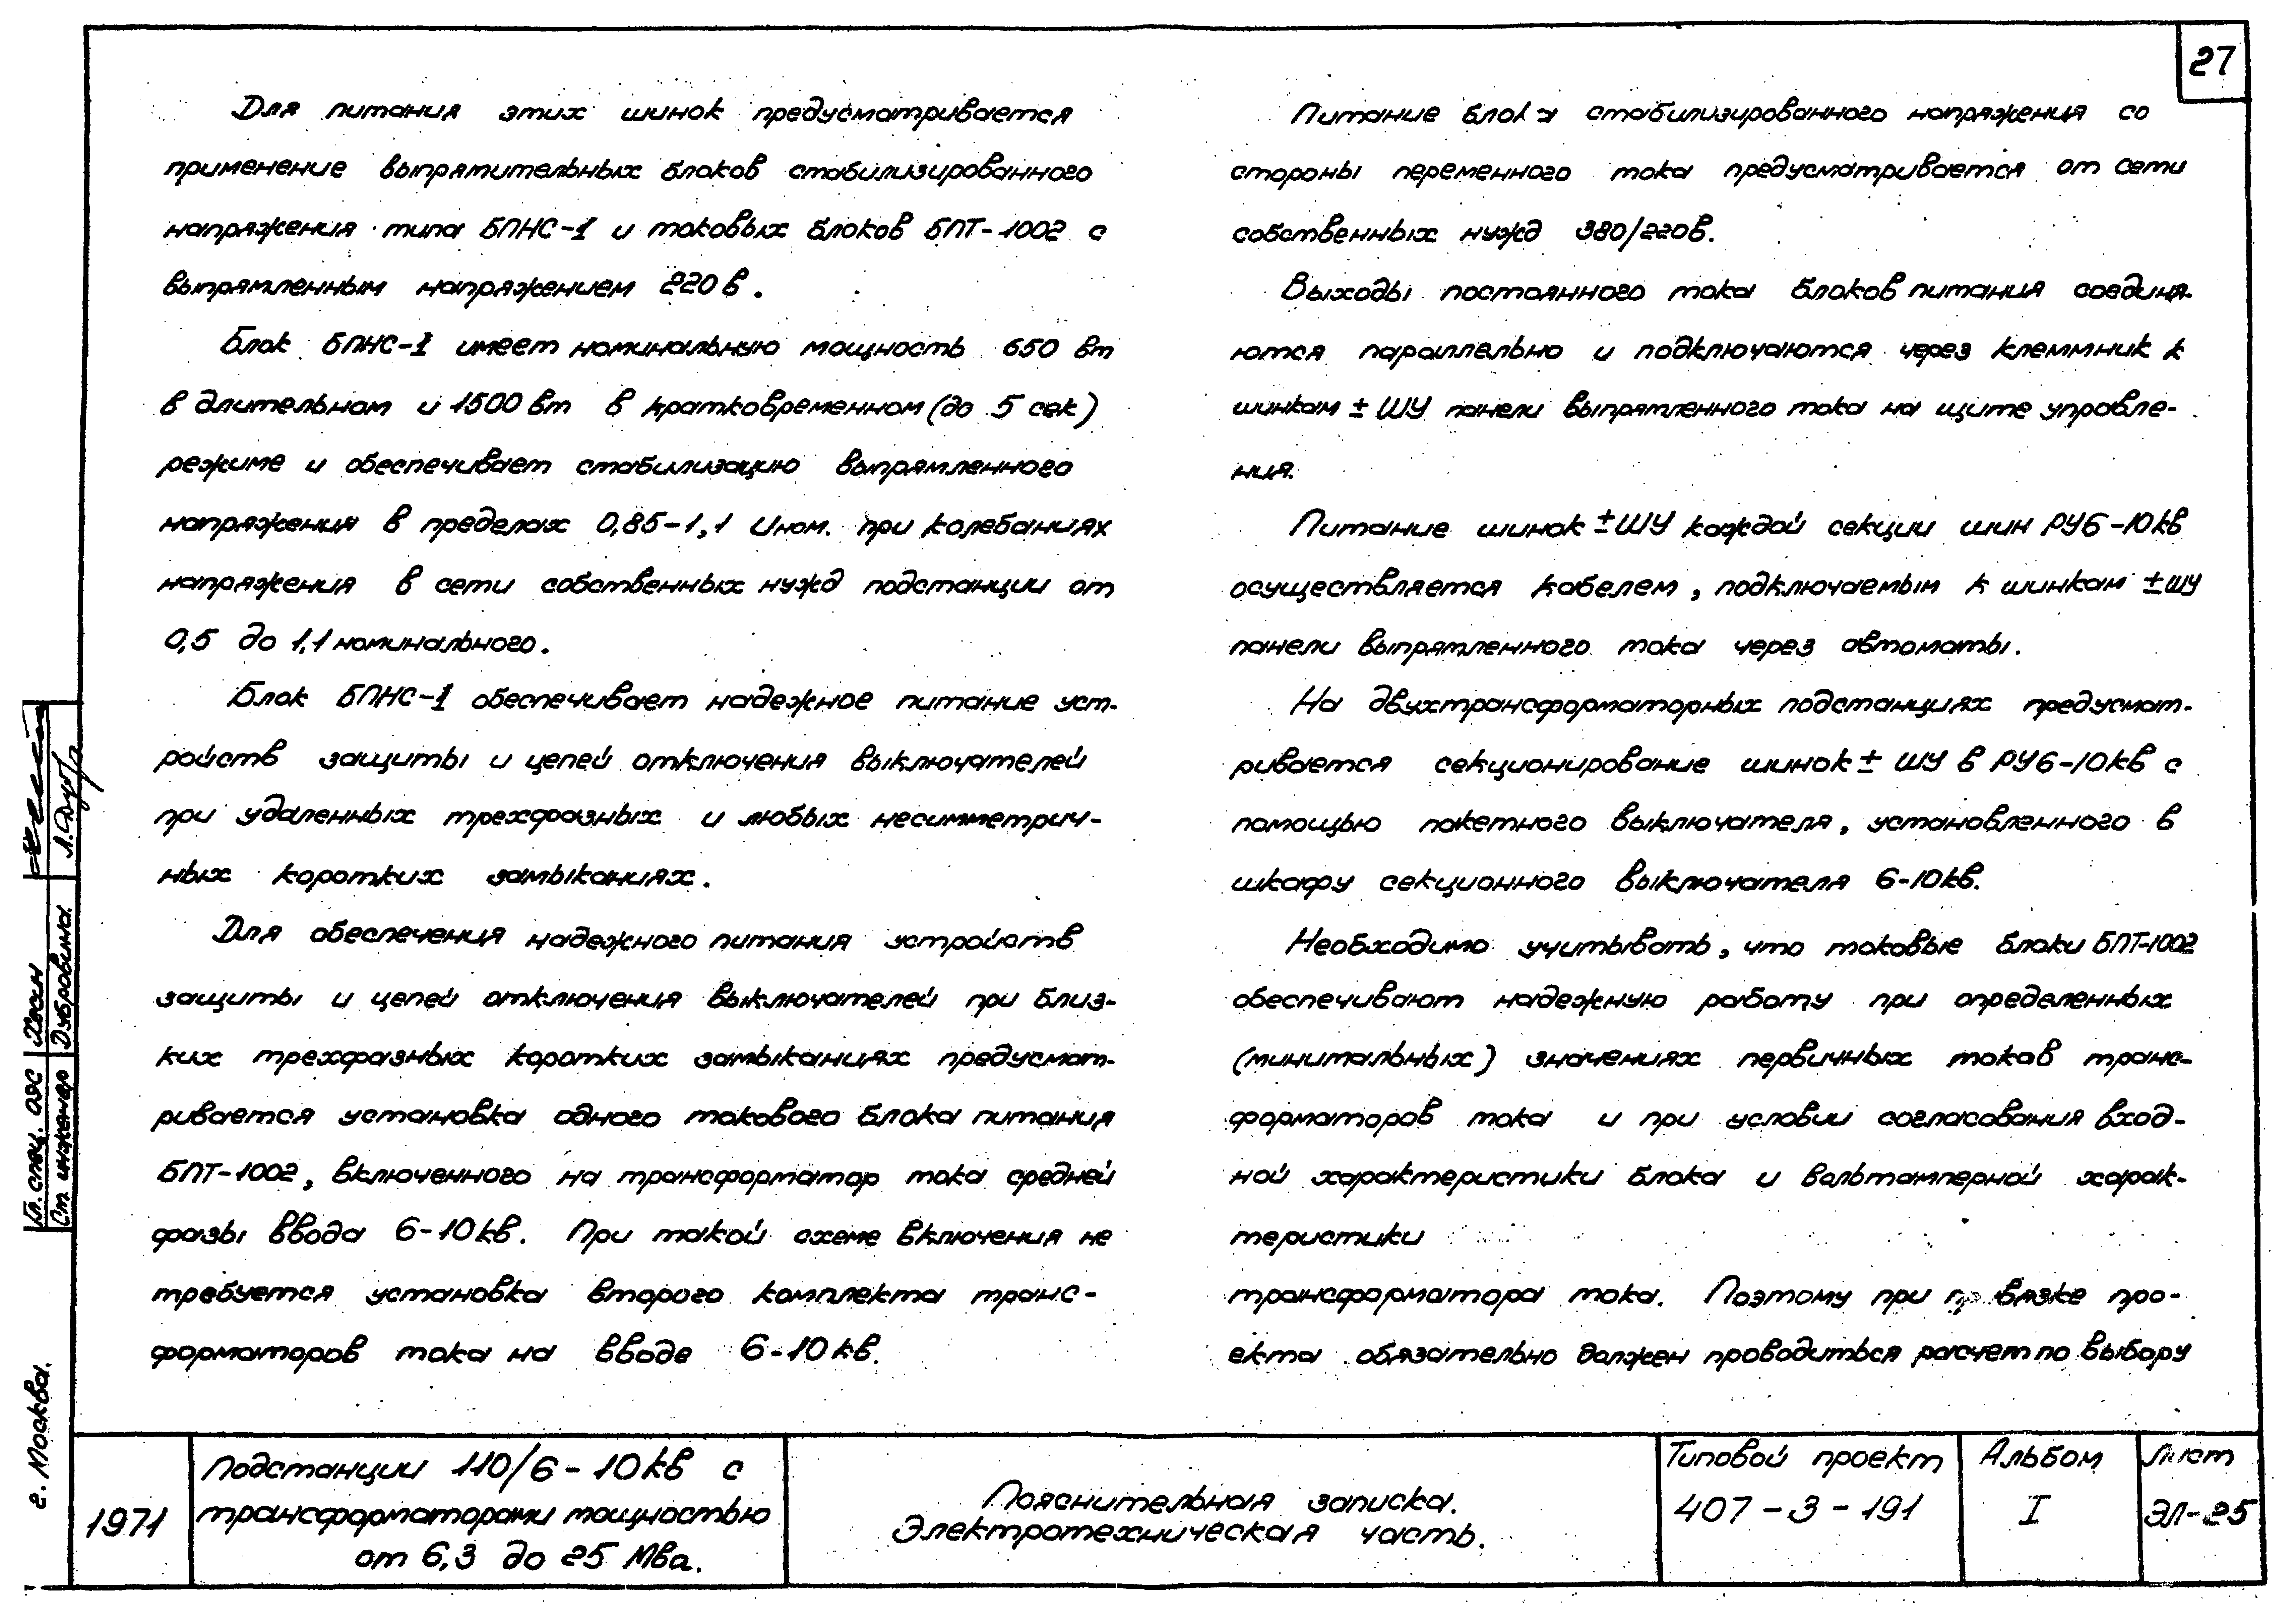 27
Для питания этих шинок предусматривается
применение выпрямительных блоков стабилизированного
напряжения типа БПНС-1 и токовых блоков БПТ-1002 с
выпрямленным напряжением 220 в.
Блок БПНС-1 имеет номинальную мощность 650 вт
в длительном и 1500 вт в кратковременном (до 5 сек)
режиме и обеспечивает стабилизацию выпрямленного
напряжения в пределах 0,85-1,1 Uном. при колебаниях
напряжения в сети собственных нужд подстанции от
0,5 до 1,1 номинального.
Блок БПНС-1 обеспечивает надежное питание уст-
ройств защиты и цепей отключения выключателей
при удаленных трехфазных и любых несимметрич-
ных коротких замыканиях.
Для обеспечения надежного питания устройств
защиты и цепей отключения выключателей при близ-
ких трехфазных коротких замыканиях предусмат-
ривается установка одного токового блока питания
БПТ-1002, включенного на трансформатор тока средней
фазы ввода 6-10 кв. При такой схеме включения не
требуется установка второго комплекта транс-
форматоров тока на вводе 6-10 кв.
Питание стабилизированного напряжения со
стороны переменного тока предусматривается от сети
собственных нужд 380/220в.
Выходы постоянного тока блоков питания соединя-
ются параллельно и подключаются через клеммник к
шинкам ± ШУ панели выпрямленного тока на щите управле-
ния.
Питание шинок ± ШУ каждой секции шин РУ 6-10 кв
осуществляется кабелем, подключаемым к шинкам ± ШУ
панели выпрямленного тока через автоматы.
На двухтрансформаторных подстанциях предусмат-
ривается секционирование шинок ± ШУ в РУ 6-10 кв с
помощью пакетного выключателя, установленного в
шкафу секционного выключателя 6-10 кв.
Необходимо учитывать, что токовые блоки БПТ-1002
обеспечивают надежную работу при определенных
(минимальных) значениях первичных токов транс-
форматоров тока и при условии согласования вход-
ной характеристики блока и вольтамперной харак-
теристики
трансформатора тока. Поэтому при привязке про-
екта обязательно должен проводиться расчет по выбору
Гл. спец. ОЭС Хвоин
Ст. инженер Дубровина Л.Дуб
г. Москва.
1971
Подстанции 110/6-10 кв с
трансформаторами мощностью
от 6,3 до 25 Мва.
Пояснительная записка.
Электротехническая часть.
Типовой проект
407-3-191
Альбом
I
Лист
ЭЛ-25